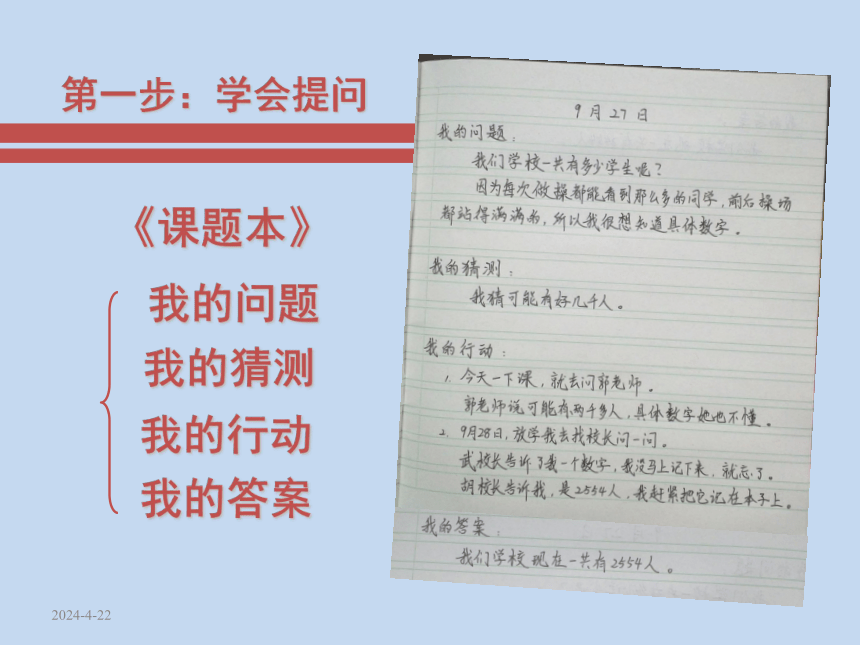 第一步：学会提问
《课题本》
我的问题
我的猜测
我的行动
我的答案
2024-4-22
9月27日
我的问题：
我们学校一共有多少学生呢？
因为每次做操都能看到那么多的同学，前后操场
都站得满满的，所以我很想知道具体数字。
我的猜测：
我猜可能有好几千人。
我的行动：
1. 今天一下课，就去问郭老师。
郭老师说可能有两千多人，具体数字她也不懂。
2. 9月28日，放学我去找校长问一问。
武校长告诉了我一个数字，我没马上记下来，就忘了。
胡校长告诉我，是2554人，我赶紧把它记在本子上。
我的答案：
我们学校现在一共有2554人。